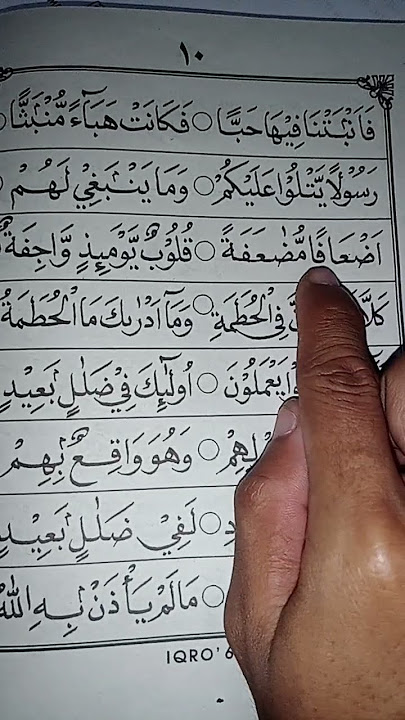 ١٠
فَاَنْۢبَتْنَا فِيْهَا حَبًّا ○ فَكَانَتْ هَبَآءً مُّنْۢبَثًّا ○
رَسُوْلًا يَّتْلُوْا عَلَيْكُمْ ○ وَمَا يَنْۢبَغِيْ لَهُمْ
اَضْعَافًا مُّضٰعَفَةً ○ قُلُوْبٌ يَّوْمَىِٕذٍ وَّاجِفَةٌ
كَلَّا فِى الْحُطَمَةِ ○ وَمَآ اَدْرٰىكَ مَا الْحُطَمَةُ
يَعْمَلُوْنَ ○ اُولٰٓىِٕكَ فِيْ ضَلٰلٍۢ بَعِيْدٍ
○ وَهُوَ وَاقِعٌۢ بِهِمْ
○ لَفِيْ ضَلٰلٍۢ بَعِيْدٍ
○ مَا لَمْ يَأْذَنْۢ بِهِ اللّٰهُ
IQRO' 6